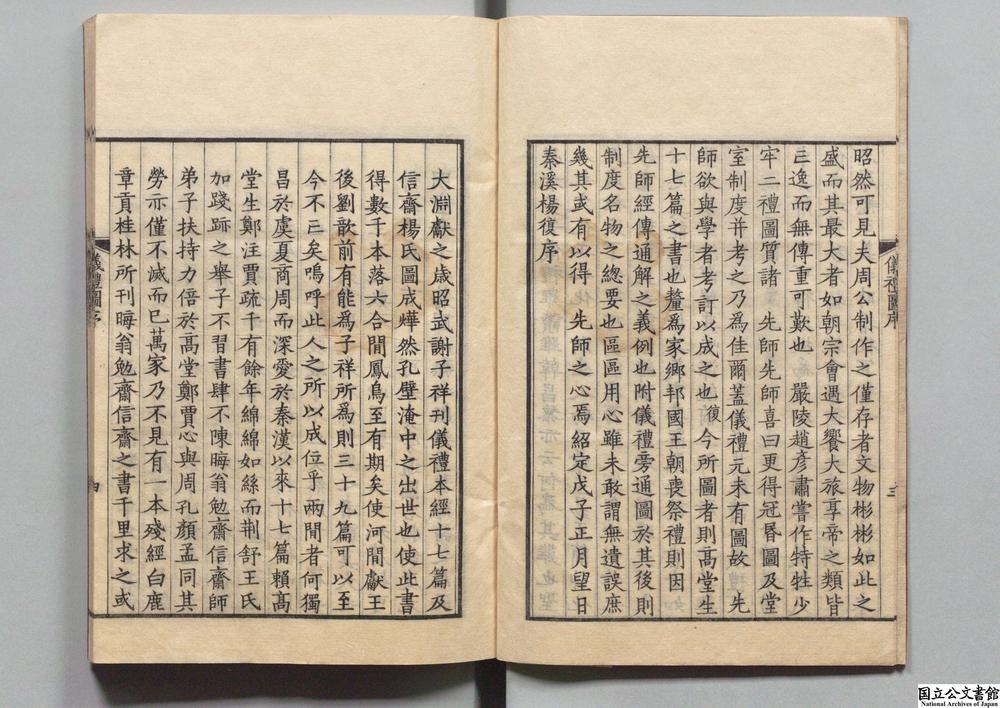 昭然可見夫周公制作之僅存者文物彬彬如此之
盛而其最大者如朝宗會遇大饗大旅享帝之類皆
三逸而無傳重可歎也 嚴陵趙彥肅嘗作特牲少
牢二禮圖質諸 先師先師喜曰更得冠昏圖及堂
室制度并考之乃為佳爾蓋儀禮元未有圖故 先
師欲與學者考訂以成之也復今所圖者則高堂生
十七篇之書也釐為家鄉邦國王朝喪祭禮則因
先師經傳通解之義例也附儀禮旁通圖於其後則
制度名物之總要也區區用心雖未敢謂無遺誤庶
幾其或有以得 先師之心焉紹定戊子正月望日
秦溪楊復序
儀禮圖序
三
大淵獻之歲昭武謝子祥刊儀禮本經十七篇及
信齋楊氏圖成燁然孔壁淹中之出世也使此書
得數千本落六合間鳳鳥至有期矣使河間獻王
後劉歆前有能為子祥所為則三十九篇可以至
今不亾矣嗚呼此人之所以成位乎兩間者何獨
昌於虞夏商周而深愛於秦漢以來十七篇賴高
堂生鄭注賈疏千有餘年綿綿如絲而荆舒王氏
加踐跡之舉子不習書肆不陳晦翁勉齋信齋師
弟子扶持力倍於高堂鄭賈心與周孔顏孟同其
勞亦僅不滅而已萬家乃不見有一本殘經白鹿
章貢桂林所刊晦翁勉齋信齋之書千里求之或
儀禮圖序
四
国立公文書館
National Archives of Japan